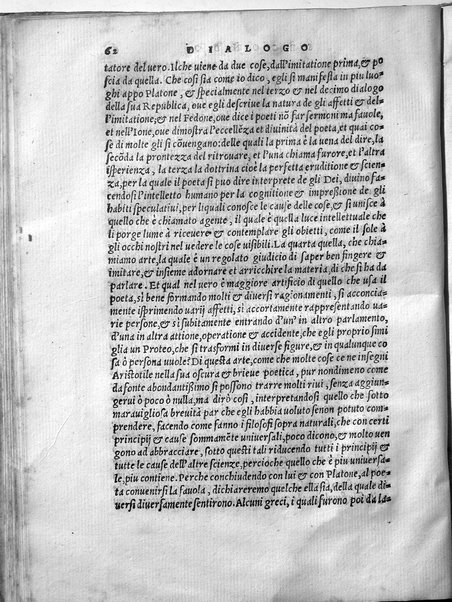 62 DIALOGO
tatore del vero. Ilche viene da due cose, dall'imitatione prima, & po
scia da quella. Che cosi sia come io dico, egli si manifesta in piu luo
ghi appo Platone, & specialmente nel terzo & nel decimo dialogo
della sua Republica, oue egli descriue la natura de gli affetti & del-
l'imitatione; & nel Fedone, oue dice i poeti nõ far sermoni ma fauole,
et nell'Ione, oue dimostra l'eccellẽza et diuinità del poeta, et quai co-
se di molte gli si cõuengano: delle quali la prima è la uena del dire, la
secõda la prontezza del ritrouare, et l'una chiama furore, et l'altra
isperienza, la terza la dottrina cioè la perfetta eruditione & scien-
za, per la quale il poeta si puo dire interprete de gli Dei, diuino fa-
cendosi l'intelletto humano per la cognitione & impressione de gli
habiti speculatiui, per liquali conosce le cause delle cose, & si unisce à
quello che è chiamato agente, il quale è quella luce intellettuale che
gli porge lume à riceuere & contemplare gli obietti, come il sole à
gli occhi nostri nel uedere le cose uisibili. La quarta quella, che chia-
miamo arte, la quale è un regolato giudicio di saper ben fingere &
imitare, & insieme adornare et arricchire la materia, di che si ha da
parlare. Et qual nel uero è maggiore artificio di quello che usa il
poeta, sì bene formando molti & diuersi ragionamenti, si acconcia-
mente isprimendo uarij affetti, si accortamente rappresentando ua-
rie persone, & sì subitamente entrando d'un' in altro parlamento,
d'una in altra attione, operatione & accidente, che egli proprio simi
glia un Proteo, che si trasformi in diuerse figure, & in qualunque co
sa ò persona uuole? Di questa arte, come che molte cose ce ne insegni
Aristotile nella sua oscura & brieue poetica, pur nondimeno come
da fonte abondantißimo si possono trarre molti riui, senza aggiun-
gerui ò poco ò nulla, ma dirò così, interpretandosi quello che sotto
marauigliosa breuità par che egli habbia uoluto se non potuto com-
prendere, facendo come fanno i filosofi sopra naturali, che con certi
principij & cause sommamẽte uniuersali, poco dicono, & molto uen
gono ad abbracciare, sotto questi tali riducendo tutti i principij &
tutte le cause dell'altre scienze, percioche quello che è piu uniuersa-
le, piu contiene. Perche conchiudendo con lui & con Platone, al poe-
ta conuenirsi la fauola, dichiareremo quelche ella sia, della quale di-
uersi diuersamente sentirono. Alcuni greci, i quali furono poi da la-